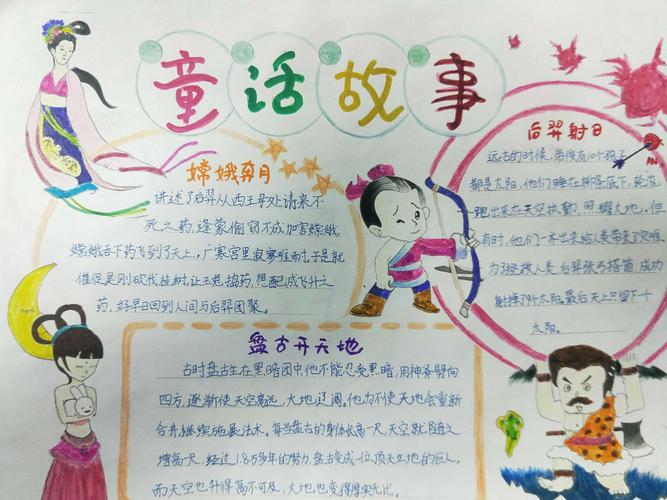 童话故事
嫦娥奔月
讲述了后羿从西王母处请来不
死之药，逢蒙偷窃不成加害嫦娥，
嫦娥吞下药飞到了天上，广寒宫里寂寥难耐，于是就
催促吴刚砍伐桂树，让玉兔捣药，想配成飞升之
药，好早日回到人间与后羿团聚。
后羿射日
远古的时候，帝俊有10个孩子
都是太阳，他们睡在树底下，轮流
跑出来在天空执勤，照耀大地，但
有时，他们一齐出来给人类带来了灾难
为了拯救人类，后羿张弓搭箭，成功
射掉了9个太阳。最后天上只留下一个
太阳。
盘古开天地
古时盘古生在黑暗团中，他不能忍受黑暗，用神斧劈向
四方，逐渐使天空高远，大地辽阔。他为不使天地会重新
合并，继续施展法术。每当盘古的身体长高一尺，天空就随之
增高一尺，经过1.8万多年的努力，盘古变成一位顶天立地的巨人，
而天空也升得高不可及，大地也变得厚实无比。